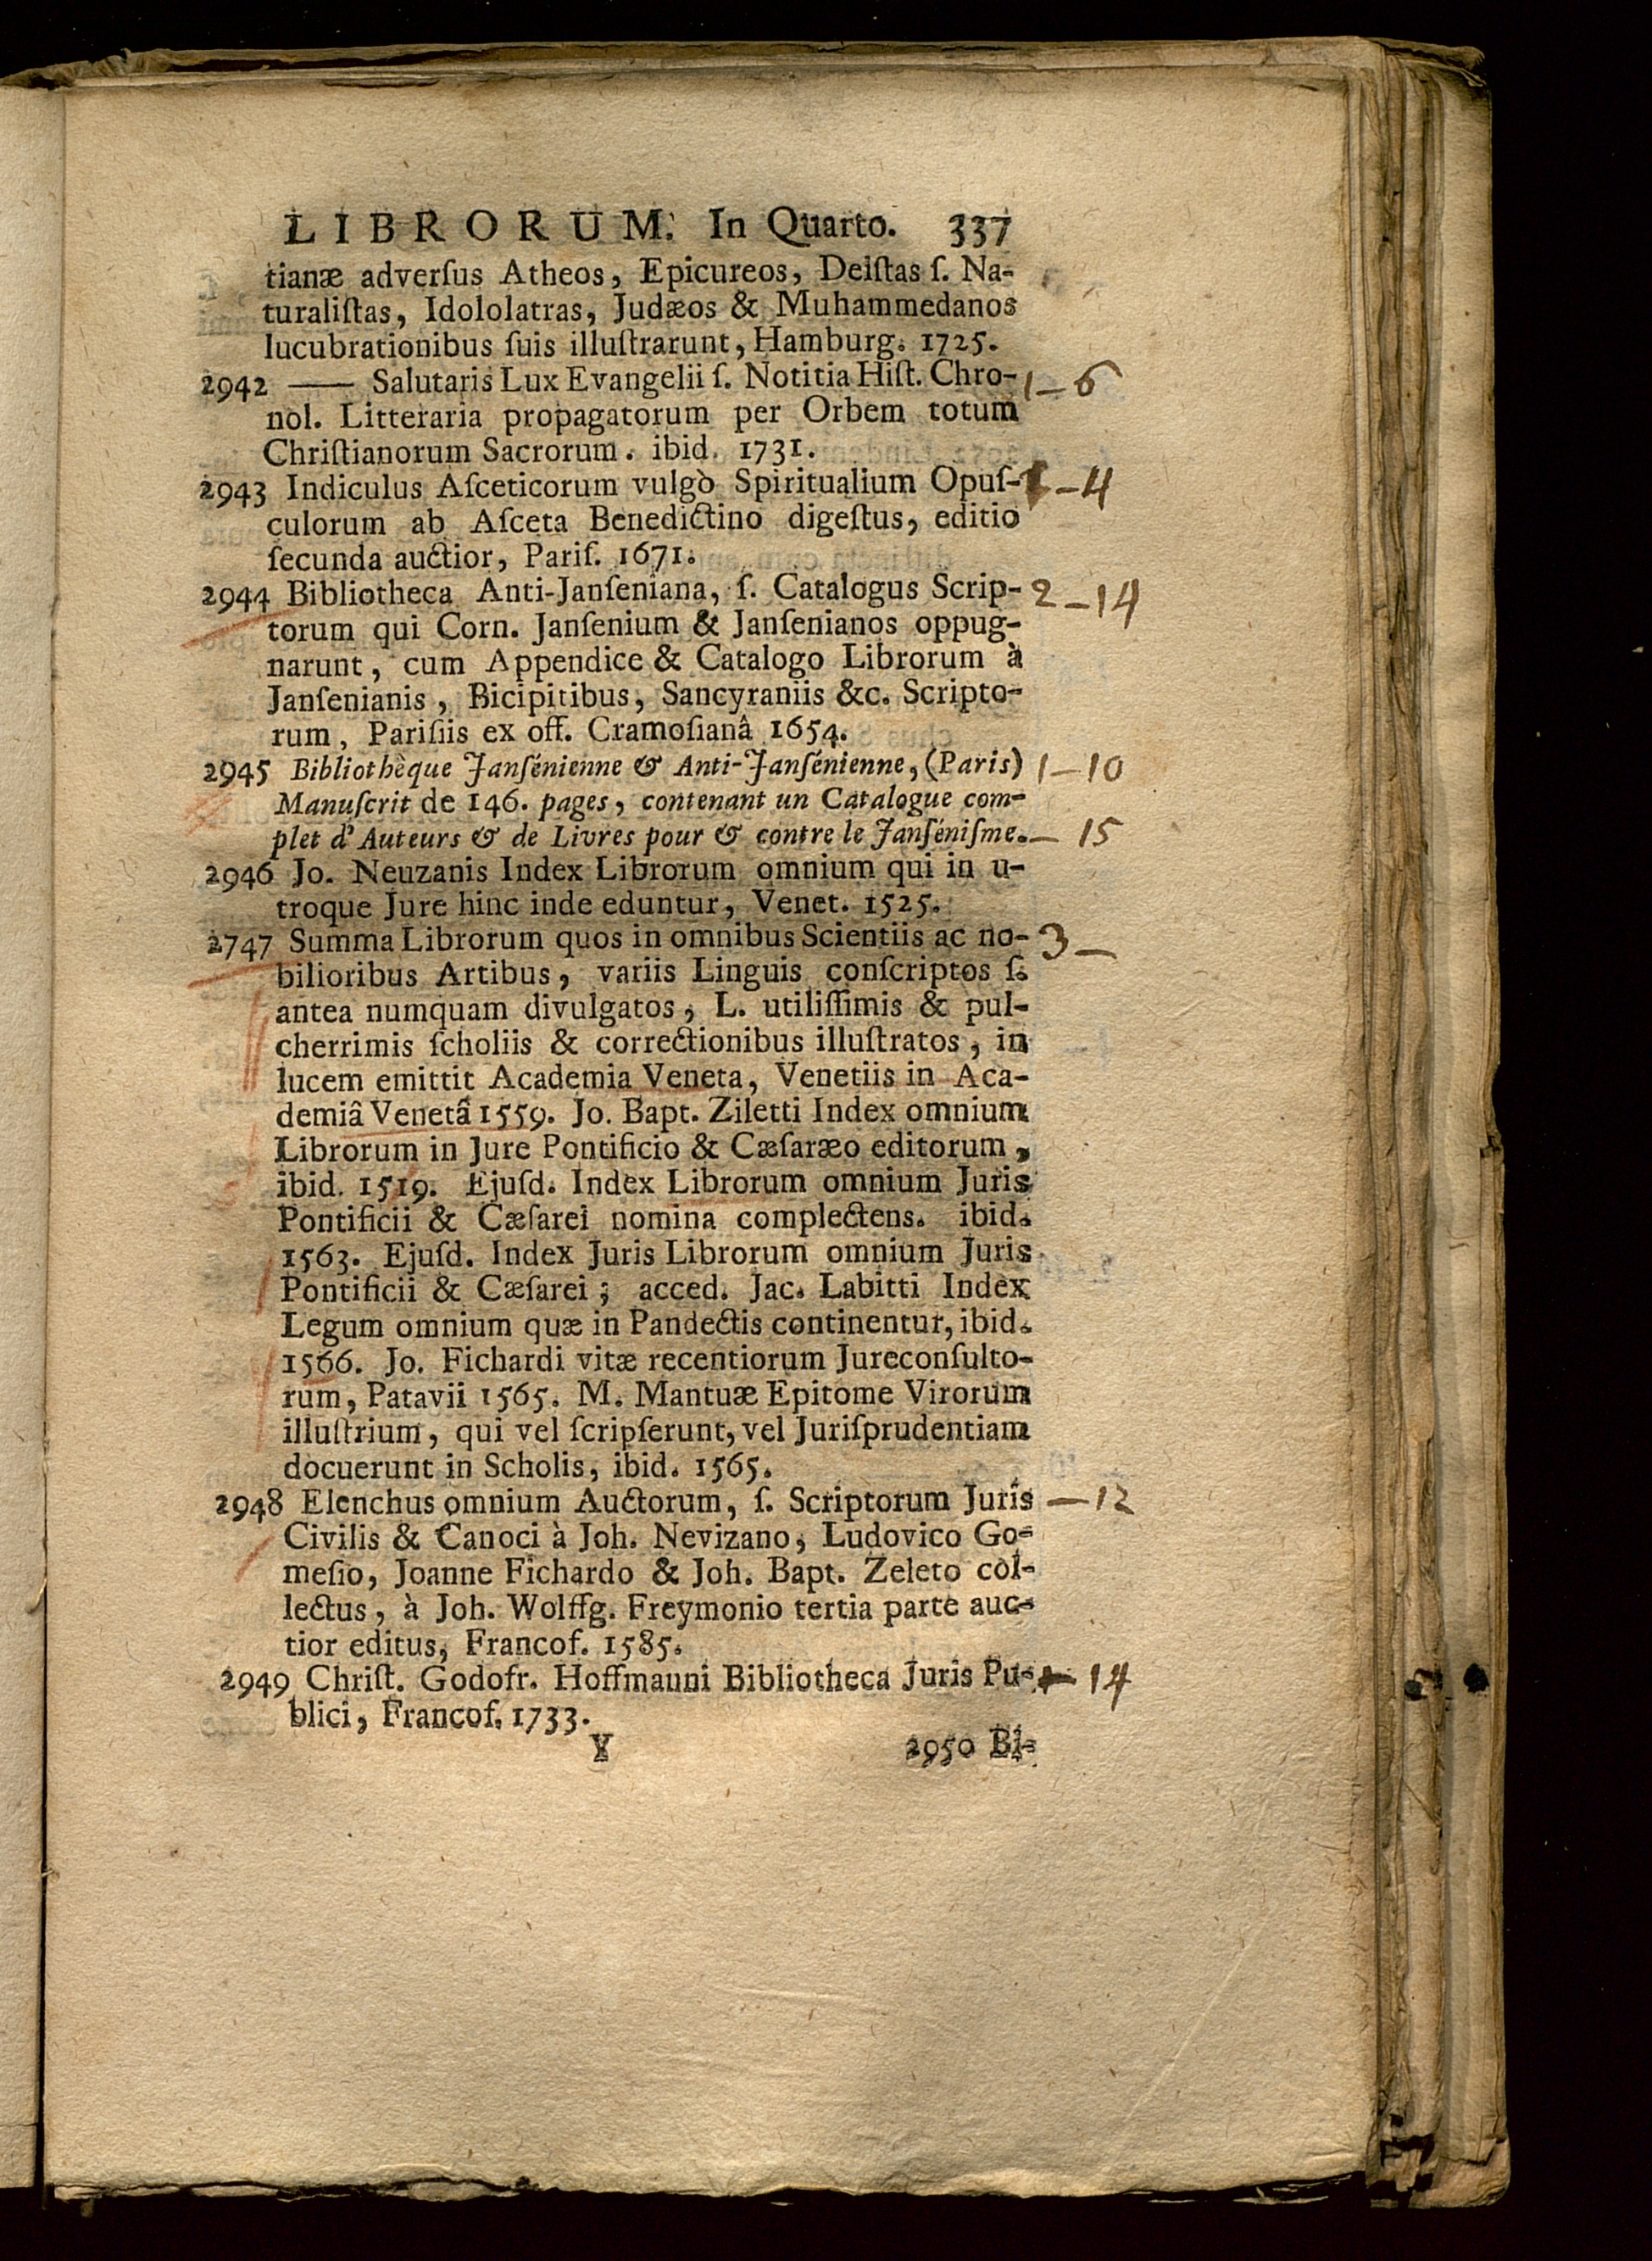 LIBRORUM. In Quarto. 337
tianæ adverſus Atheos, Epicureos, Deiſtas ſ. Na-
turaliſtas, Idololatras, Judæos & Muhammedanos
lucubrationibus ſuis illuſtrarunt, Hamburg. 1725.
2942 —— Salutaris Lux Evangelii ſ. Notitia Hiſt. Chro- 1 — 6
nol. Litteraria propagatorum per Orbem totum
Chriſtianorum Sacrorum. ibid. 1731.
2943 Indiculus Aſceticorum vulgò Spiritualium Opuſ- — 4
culorum ab Aſceta Benedictino digeſtus, editio
ſecunda auctior, Pariſ. 1671.
2944 Bibliotheca Anti-Janſeniana, ſ. Catalogus Scrip- 2 — 14
torum qui Corn. Janſenium & Janſenianos oppug-
narunt, cum Appendice & Catalogo Librorum à
Janſenianis, Bicipitibus, Sancyraniis &c. Scripto-
rum, Pariſiis ex off. Cramoſianâ 1654.
2945 Bibliothèque Janſénienne & Anti-Janſénienne, (Paris) 1 — 10
Manuſcrit de 146. pages, contenant un Catalogue com-
plet d'Auteurs & de Livres pour & contre le Janſéniſme. — 15
2946 Jo. Neuzanis Index Librorum omnium qui in u-
troque Jure hinc inde eduntur, Venet. 1525.
2747 Summa Librorum quos in omnibus Scientiis ac no- 3 —
bilioribus Artibus, variis Linguis conſcriptos ſ.
antea numquam divulgatos, L. utiliſſimis & pul-
cherrimis ſcholiis & correctionibus illuſtratos, in
lucem emittit Academia Veneta, Venetiis in Aca-
demiâ Venetâ 1559. Jo. Bapt. Ziletti Index omnium
Librorum in Jure Pontificio & Cæſaræo editorum,
ibid. 1519. Ejuſd. Index Librorum omnium Juris
Pontificii & Cæſarei nomina complectens. ibid.
1563. Ejuſd. Index Juris Librorum omnium Juris
Pontificii & Cæſarei; acced. Jac. Labitti Index
Legum omnium quæ in Pandectis continentur, ibid.
1566. Jo. Fichardi vitæ recentiorum Jureconſulto-
rum, Patavii 1565. M. Mantuæ Epitome Virorum
illuſtrium, qui vel ſcripſerunt, vel Juriſprudentiam
docuerunt in Scholis, ibid. 1565.
2948 Elenchus omnium Auctorum, ſ. Scriptorum Juris — 12
Civilis & Canoci à Joh. Nevizano, Ludovico Go-
meſio, Joanne Fichardo & Joh. Bapt. Zeleto col-
lectus, à Joh. Wolffg. Freymonio tertia parte auc-
tior editus, Francof. 1585.
2949 Chriſt. Godofr. Hoffmanni Bibliotheca Juris Pu- — 14
blici, Francof. 1733.
Y 2950 Bi-